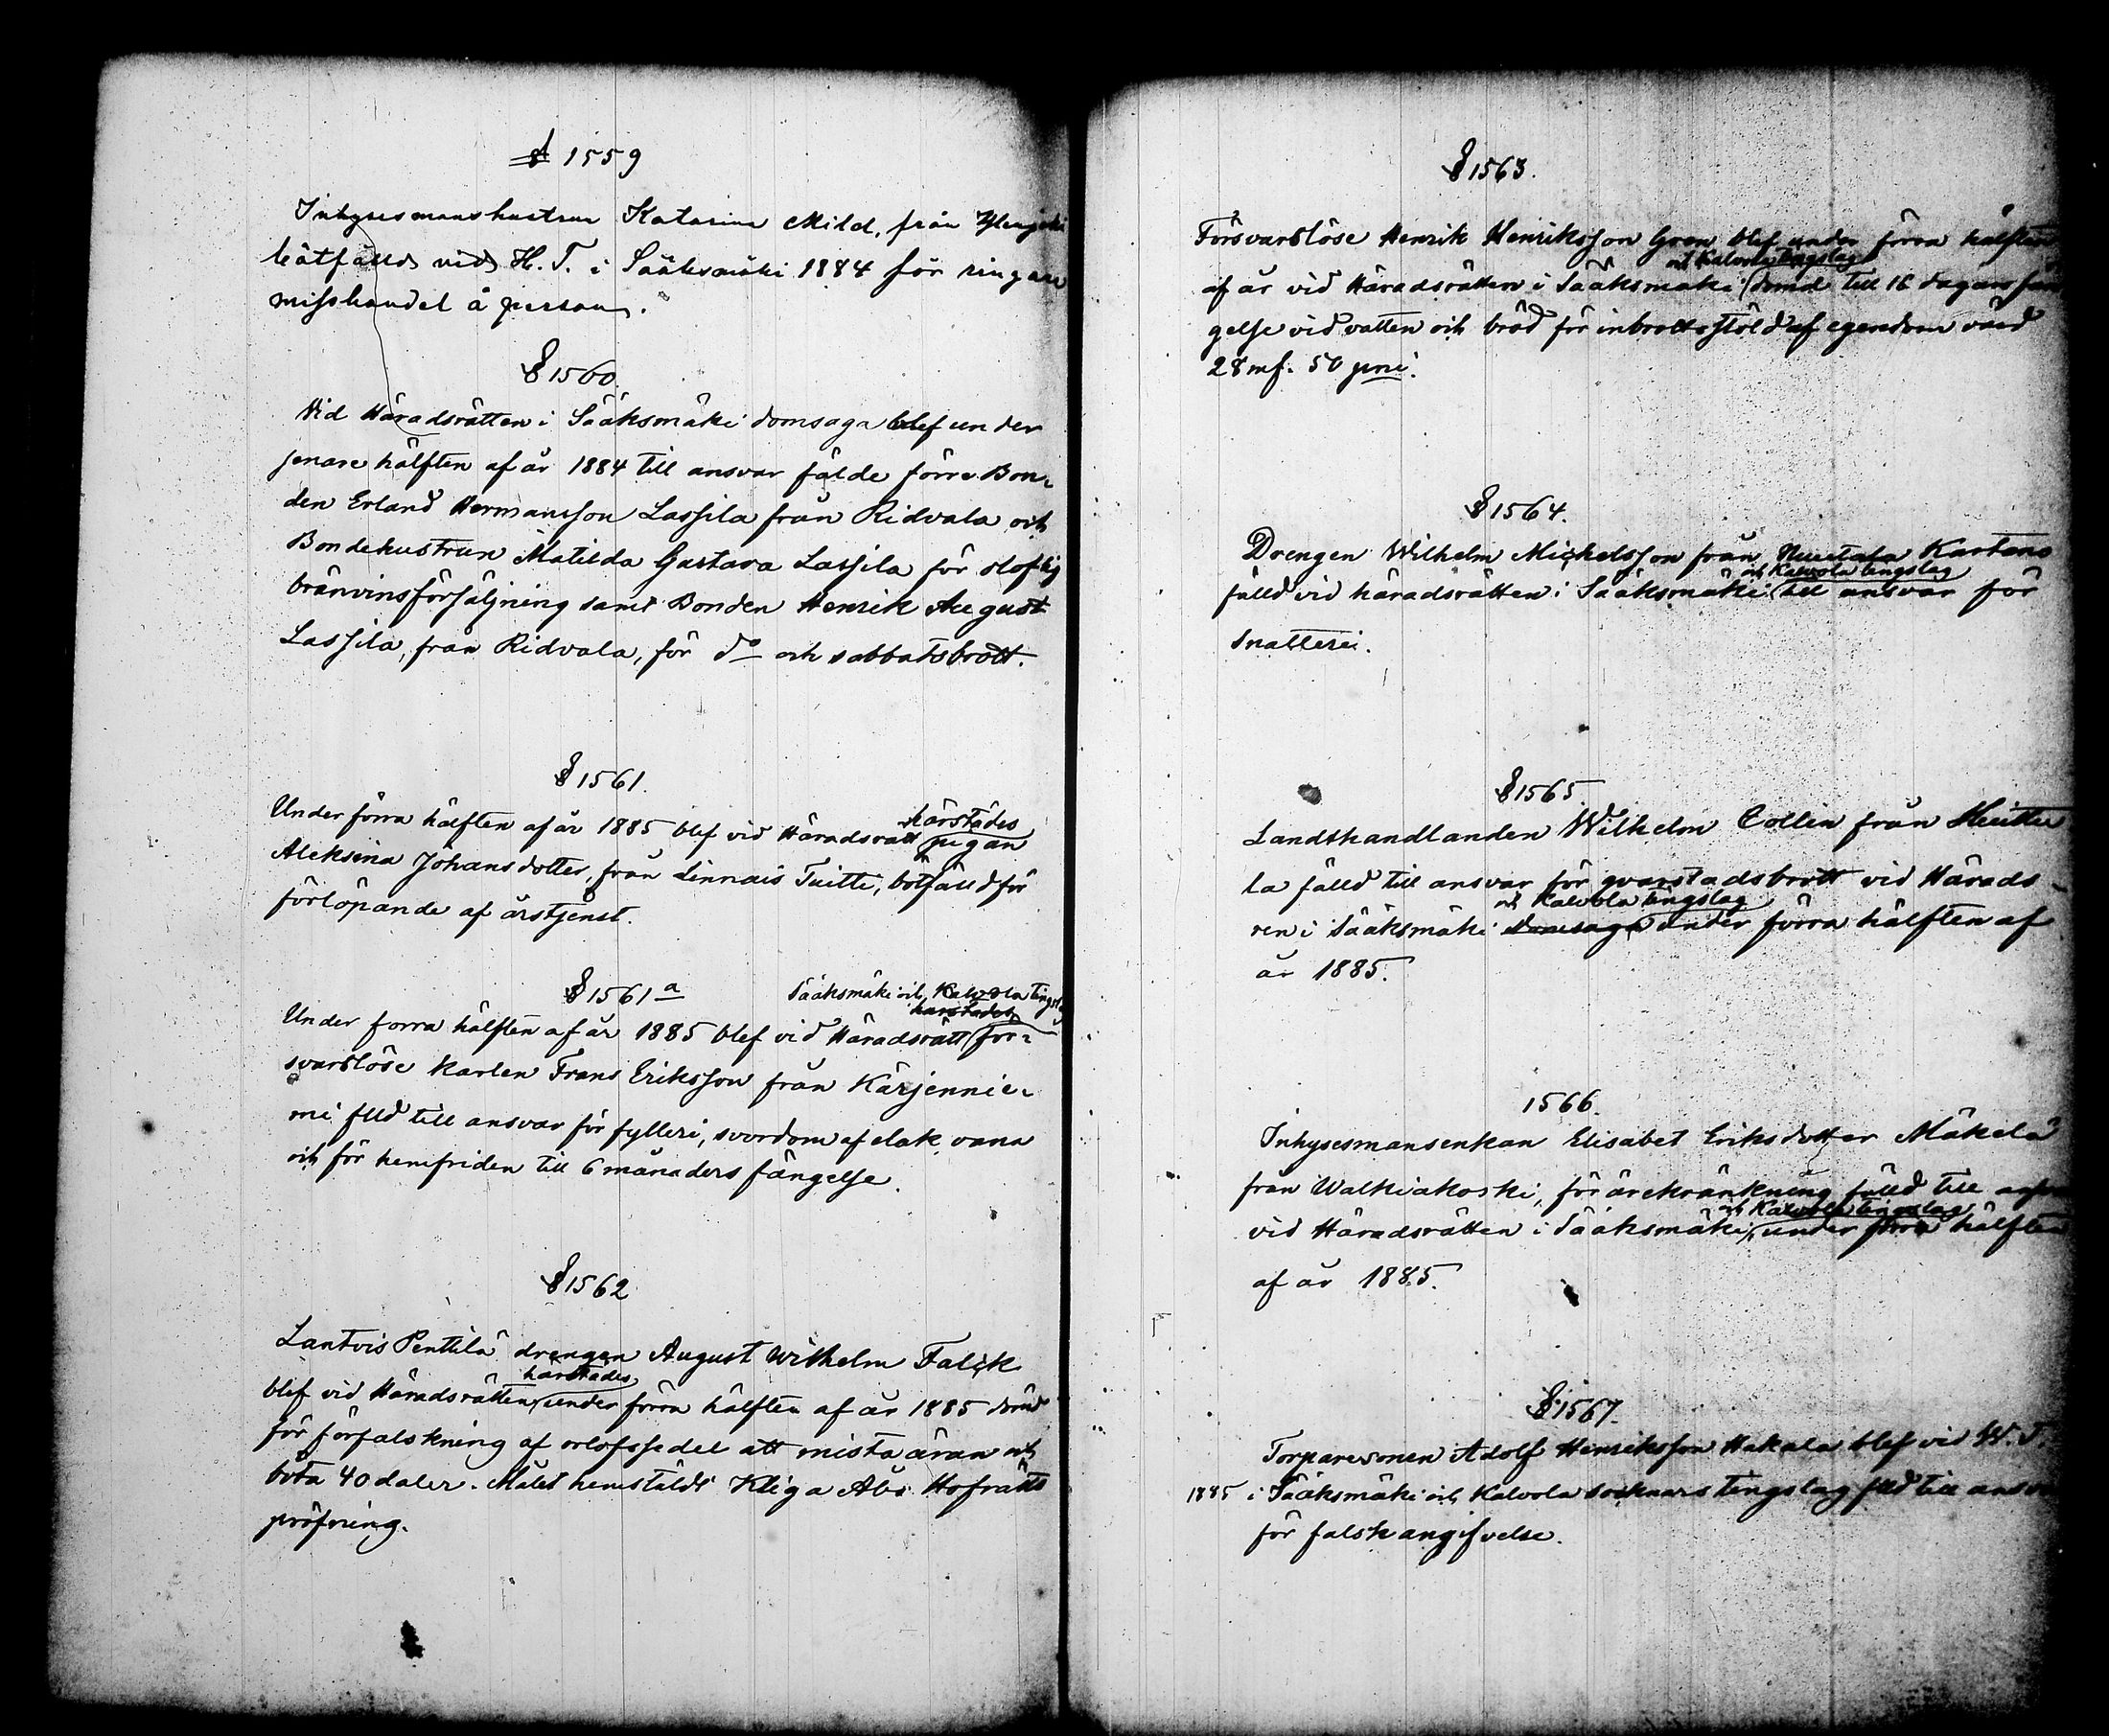 § 1559
Inhysesmanshustrun Katarina Mild, från
bötfälld vid H. T. i Sääksmäki 1884 för ringare
misshandel å person.
§ 1560.
Vid Häradsrätten i Sääksmäki domsaga blef under
senare hälften af år 1884 till ansvar fälde förre Bon-
den Erland Hermansson Lassila från Ridvala och
Bondehustrun Matilda Gustava Lassila för oloflig
bränvinsförsäljning samt Bonden Henrik August
Lassila, från Ridvala, för do och sabbatsbrott.
§ 1561.
härstädes
Under förra hälften af år 1885 blef vid Häradsrätt pigan
Aleksina Johansdotter, från Linnais Tuitti, bötfälld för
förlöpande af årstjenst.
§ 1561 a
Sääksmäki och Kalvola tingsl
härstädes
Under forra hälften af år 1885 blef vid Häradsrätt för-
svarslöse karlen Frans Eriksson från Kärjennie-
mi flld till ansvar för fylleri, svordom af elak vana
och för hemfriden till 6 månaders fängelse.
§ 1562
Lantvis Penttilä drengen August Wilhelm Falck
härstädes
blef vid Häradsrätten under förra hälften af år 1885 dömd
för förfalskning af orlofssedel att mista äran och
böta 40 daler. Målet hemstäldt Kliga Åbo Hofrätts
pröfning.
§ 1563.
Försvarslöse Henrik Henriksson Gren blef under förra hälften
och Kalvola tingslag
af år vid Häradsrätten i Sääksmäki dömd till 16 dagars fän
gelse vid vatten och bröd för inbrottsstöld af egendom värd
28 mf. 50 pni.
§ 1564.
Drengen Wilhelm Mickelsson från Kartano
och Kalvola tingslag
fälld vid häradsrätten i Sääksmäki till ansvar för
snatteri.
§ 1565
Landthandlanden Wilhelm Collin från Huittu
la fälld till ansvar för qvarstadsbrott vid Härads-
och Kalvola tingslag
ren i Sääksmäki domsaga under förra hälften af
år 1885.
1566.
Inhysesmansenkan Elisabet Eriksdotter Mäkelä
från Walkiakoski, för ärekränkning fälld till ansv
och Kalvola tingslag
vid Häradsrätten i Sääksmäki, under förra hälften
af år 1885.
§ 1567.
Torparesonen Adolf Henriksson Hakala blef vid W. T.
1885 i Sääksmäki och Kalvola socknars tingslag flld till ansv
för falsk angifvelse.